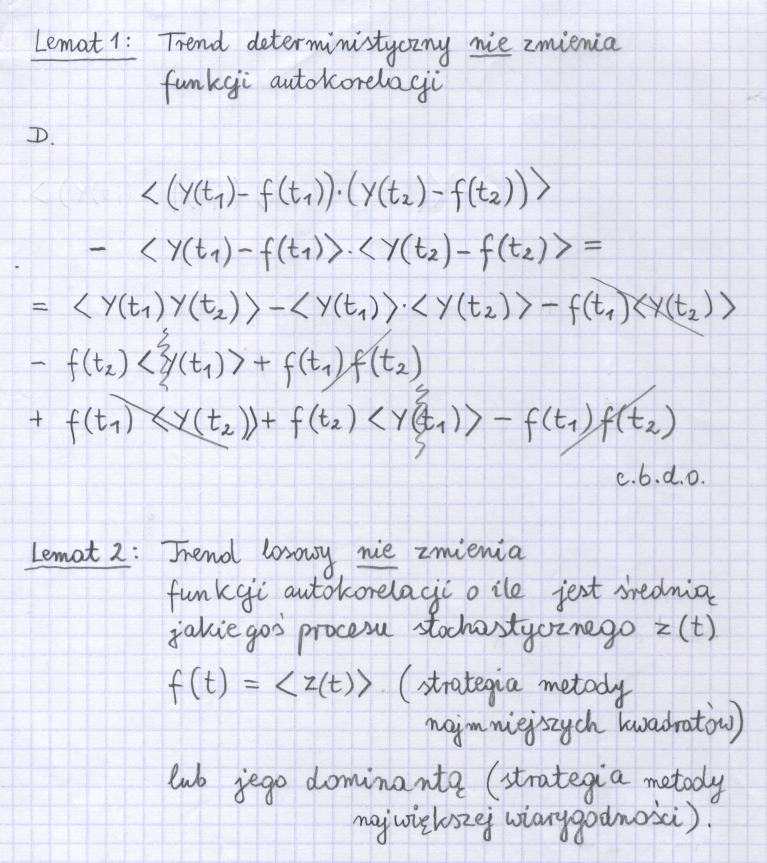 Lemat 1: Trend deterministyczny nie zmienia
funkcji autokorelacji
D.
<(Y(t₁)- f(t₁))·(Y(t₂)- f(t₂))>
- <Y(t₁)-f(t₁)>·<Y(t₂)-f(t₂)> =
= <Y(t₁)Y(t₂)>-<Y(t₁)>·<Y(t₂)> - f(t₁)<Y(t₂)>
- f(t₂)<Y(t₁)> + f(t₁)f(t₂)
+ f(t₁) <Y(t₂)>+ f(t₂) <Y(t₁)> - f(t₁)f(t₂)
c.b.d.o.
Lemat 2: Trend losowy nie zmienia
funkcji autokorelacji o ile jest średnią
jakiegoś procesu stochastycznego z(t)
f(t) = <z(t)>. (strategia metody
najmniejszych kwadratów)
lub jego dominantą (strategia metody
największej wiarygodności).